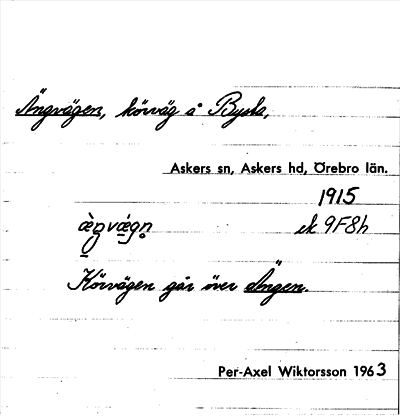 Ängvägen, körväg å Bysta,
Askers sn, Askers hd, Örebro län.
1915
æ̀ŋvǽgn̥
ek 9F8h
Körvägen går över Ängen.
Per-Axel Wiktorsson 1963